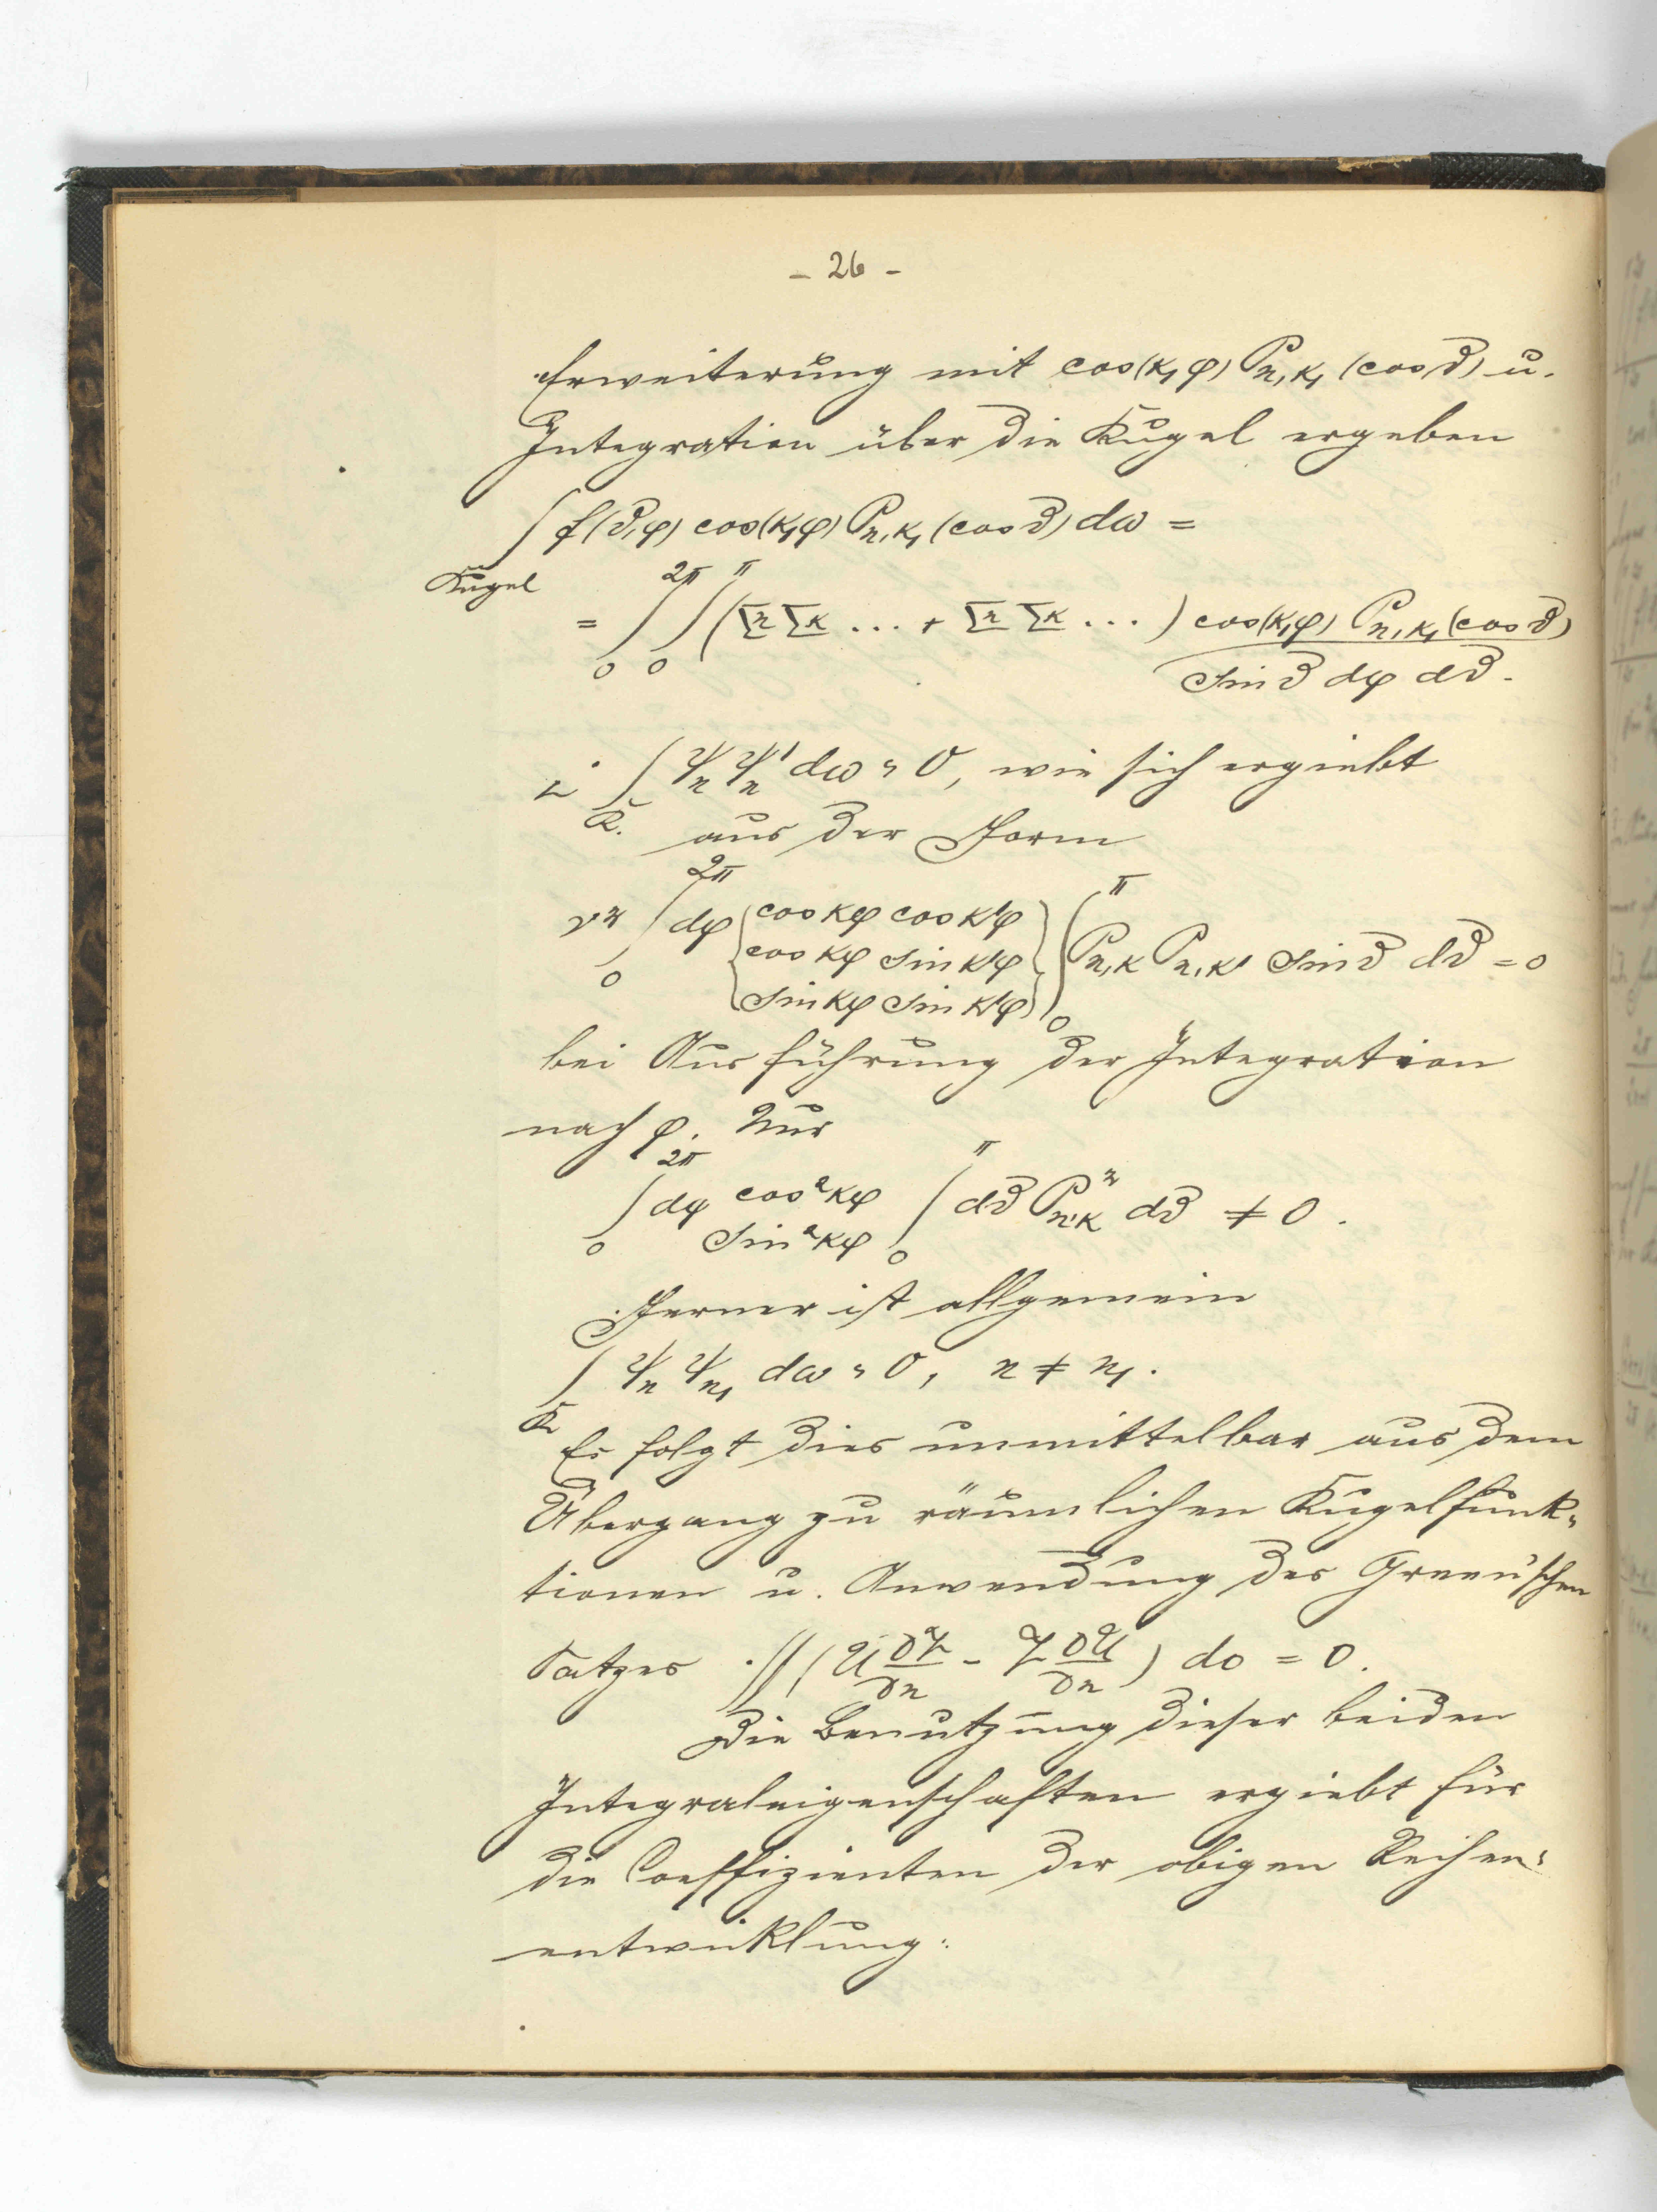 - 26 -
Erweiterung mit cos(κ₁φ) Pn,κ₁ (cos ϑ) u.
Integration über die Kugel ergeben
∫ f(ϑ,φ) cos(κ₁φ) Pn,κ₁ (cos ϑ) dω =
Kugel
= ∫₀^2π ∫₀^π (Σn Σκ ... + Σn Σκ ...) cos(κ₁φ) Pn,κ₁ (cos ϑ)
sin ϑ dφ dϑ.
∫ Ψn Ψn' dω = 0, wie sich ergiebt
K.
aus der Form
∫₀^2π dφ { cos κφ cos κ'φ
cos κφ sin κ'φ
sin κφ sin κ'φ } ∫₀^π Pn,κ Pn,κ' sin ϑ dϑ = 0
bei Ausführung der Integration
nach φ. Nur
∫₀^2π dφ cos²κφ
sin²κφ ∫₀^π dϑ P²n,κ dϑ ≠ 0.
Ferner ist allgemein
∫ Ψn Ψn₁ dω = 0, n ≠ n₁.
K
Es folgt dies unmittelbar aus dem
Übergang zu räumlichen Kugelfunk-
tionen u. Anwendung des Green'schen
Satzes ∫∫ (U ∂V/∂n - V ∂U/∂n) do = 0.
Die Benutzung dieser beiden
Integraleigenschaften ergiebt für
die Coeffizienten der obigen Reihen-
entwicklung: